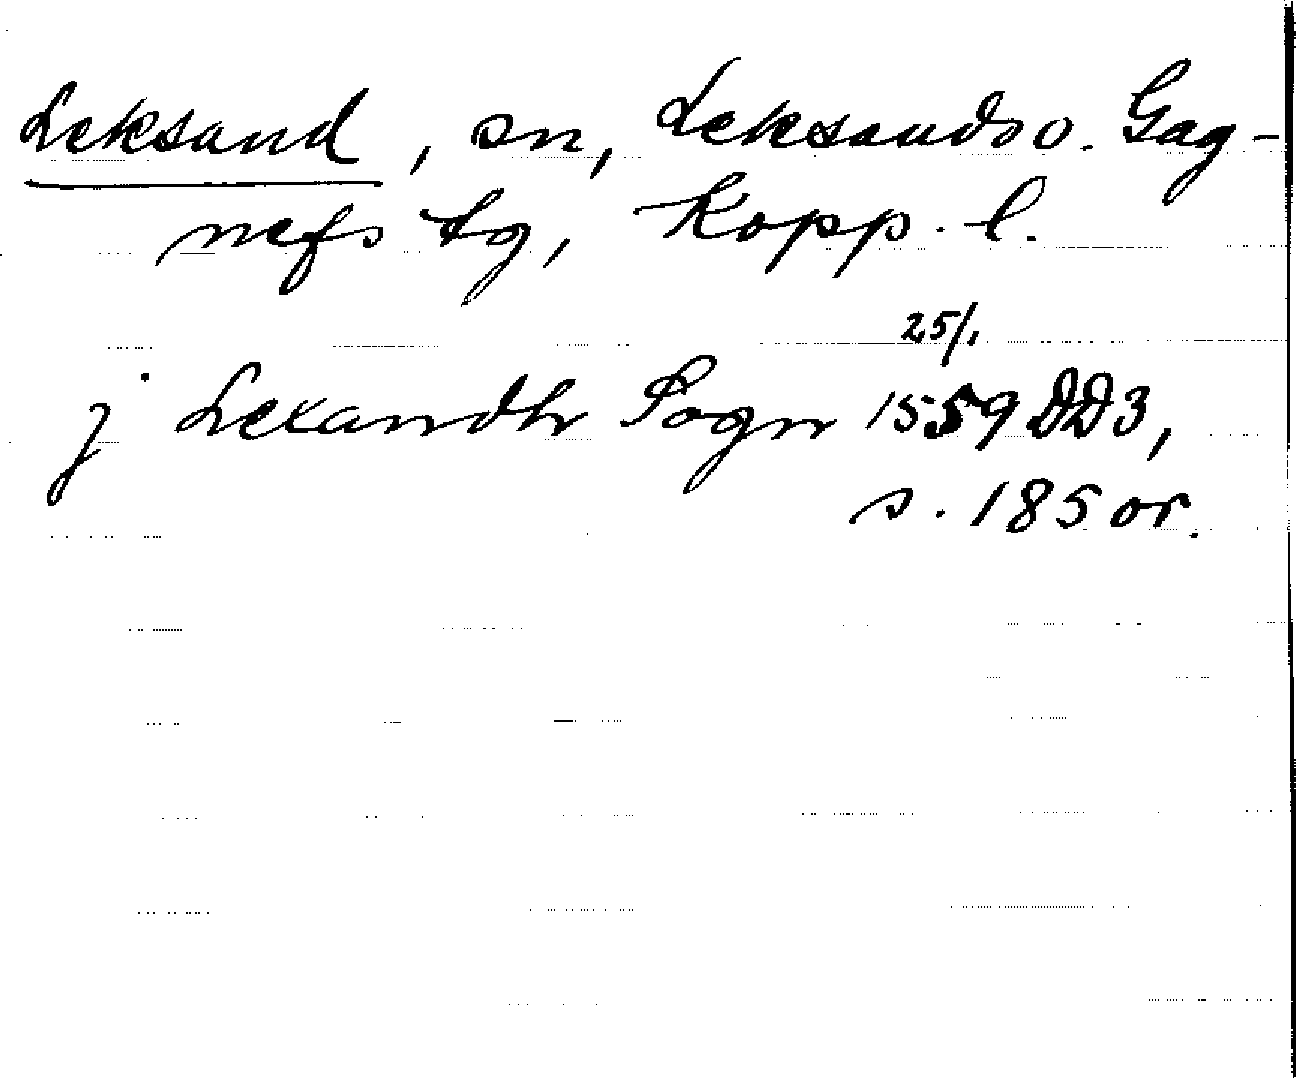 Leksand, sn, Leksands o. Gag-
nefs tg, Kopp. l.
25/1
j Lexandh Sogn 1559 DD3,
s. 185 or.